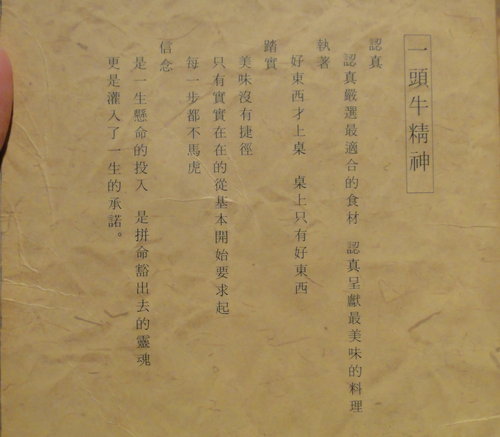 一頭牛精神
認真
認真嚴選最適合的食材　認真呈獻最美味的料理
執著
好東西才上桌　桌上只有好東西
踏實
美味沒有捷徑
只有實實在在的從基本開始要求起
每一步都不馬虎
信念
是一生懸命的投入　是拼命豁出去的靈魂
更是灌入了一生的承諾。